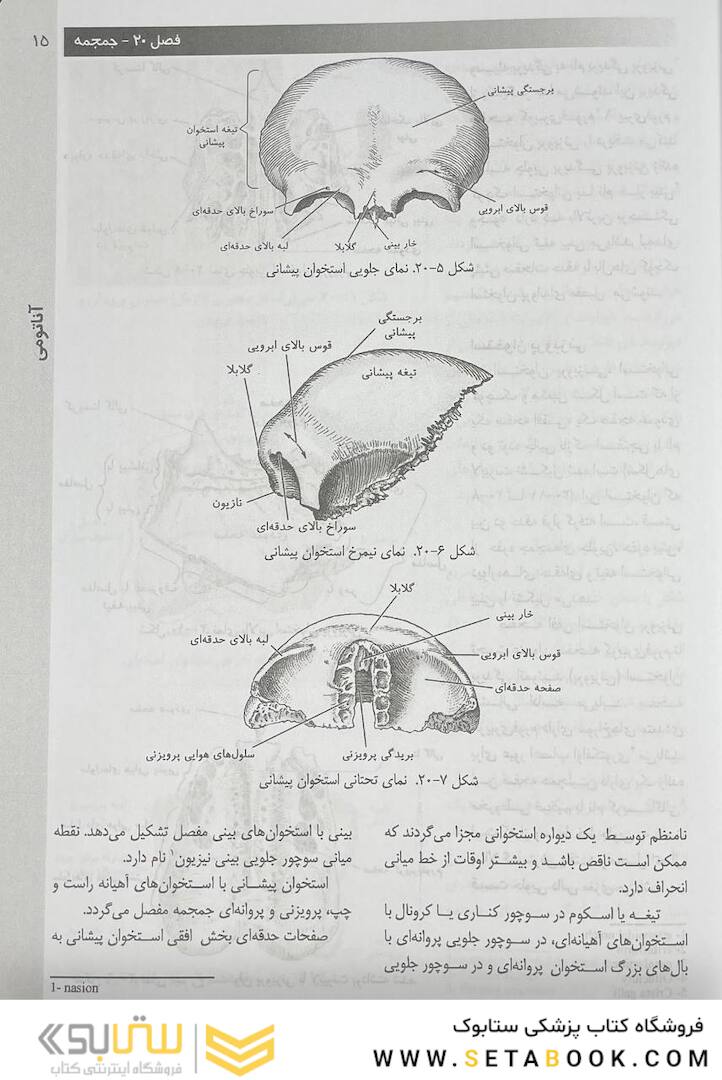 فصل ۲۰ - جمجمه
۱۵
آناتومی
برجستگی پیشانی
تیغه استخوان
پیشانی
قوس بالای ابرویی
سوراخ بالای حدقه‌ای
لبه بالای حدقه‌ای
گلابلا
خار بینی
شکل ۵-۲۰. نمای جلویی استخوان پیشانی
برجستگی
پیشانی
قوس بالای ابرویی
تیغه پیشانی
گلابلا
نازیون
سوراخ بالای حدقه‌ای
شکل ۶-۲۰. نمای نیمرخ استخوان پیشانی
گلابلا
خار بینی
لبه بالای حدقه‌ای
قوس بالای ابرویی
صفحه حدقه‌ای
سلول‌های هوایی پرویزنی
بریدگی پرویزنی
شکل ۷-۲۰. نمای تحتانی استخوان پیشانی
نامنظم توسط یک دیواره استخوانی مجزا می‌گردند که
ممکن است ناقص باشد و بیشتر اوقات از خط میانی
انحراف دارد.
تیغه یا اسکوم در سوچور کناری یا کرونال با
استخوان‌های آهیانه‌ای، در سوچور جلویی پروانه‌ای با
بال‌های بزرگ استخوان پروانه‌ای و در سوچور جلویی
بینی با استخوان‌های بینی مفصل تشکیل می‌دهد. نقطه
میانی سوچور جلویی بینی نیزیون۱ نام دارد.
استخوان پیشانی با استخوان‌های آهیانه راست و
چپ، پرویزنی و پروانه‌ای جمجمه مفصل می‌گردد.
صفحات حدقه‌ای بخش افقی استخوان پیشانی به
1- nasion
فروشگاه کتاب پزشکی ستابوک
WWW.SETABOOK.COM
ستابوک
فروشگاه اینترنتی کتاب